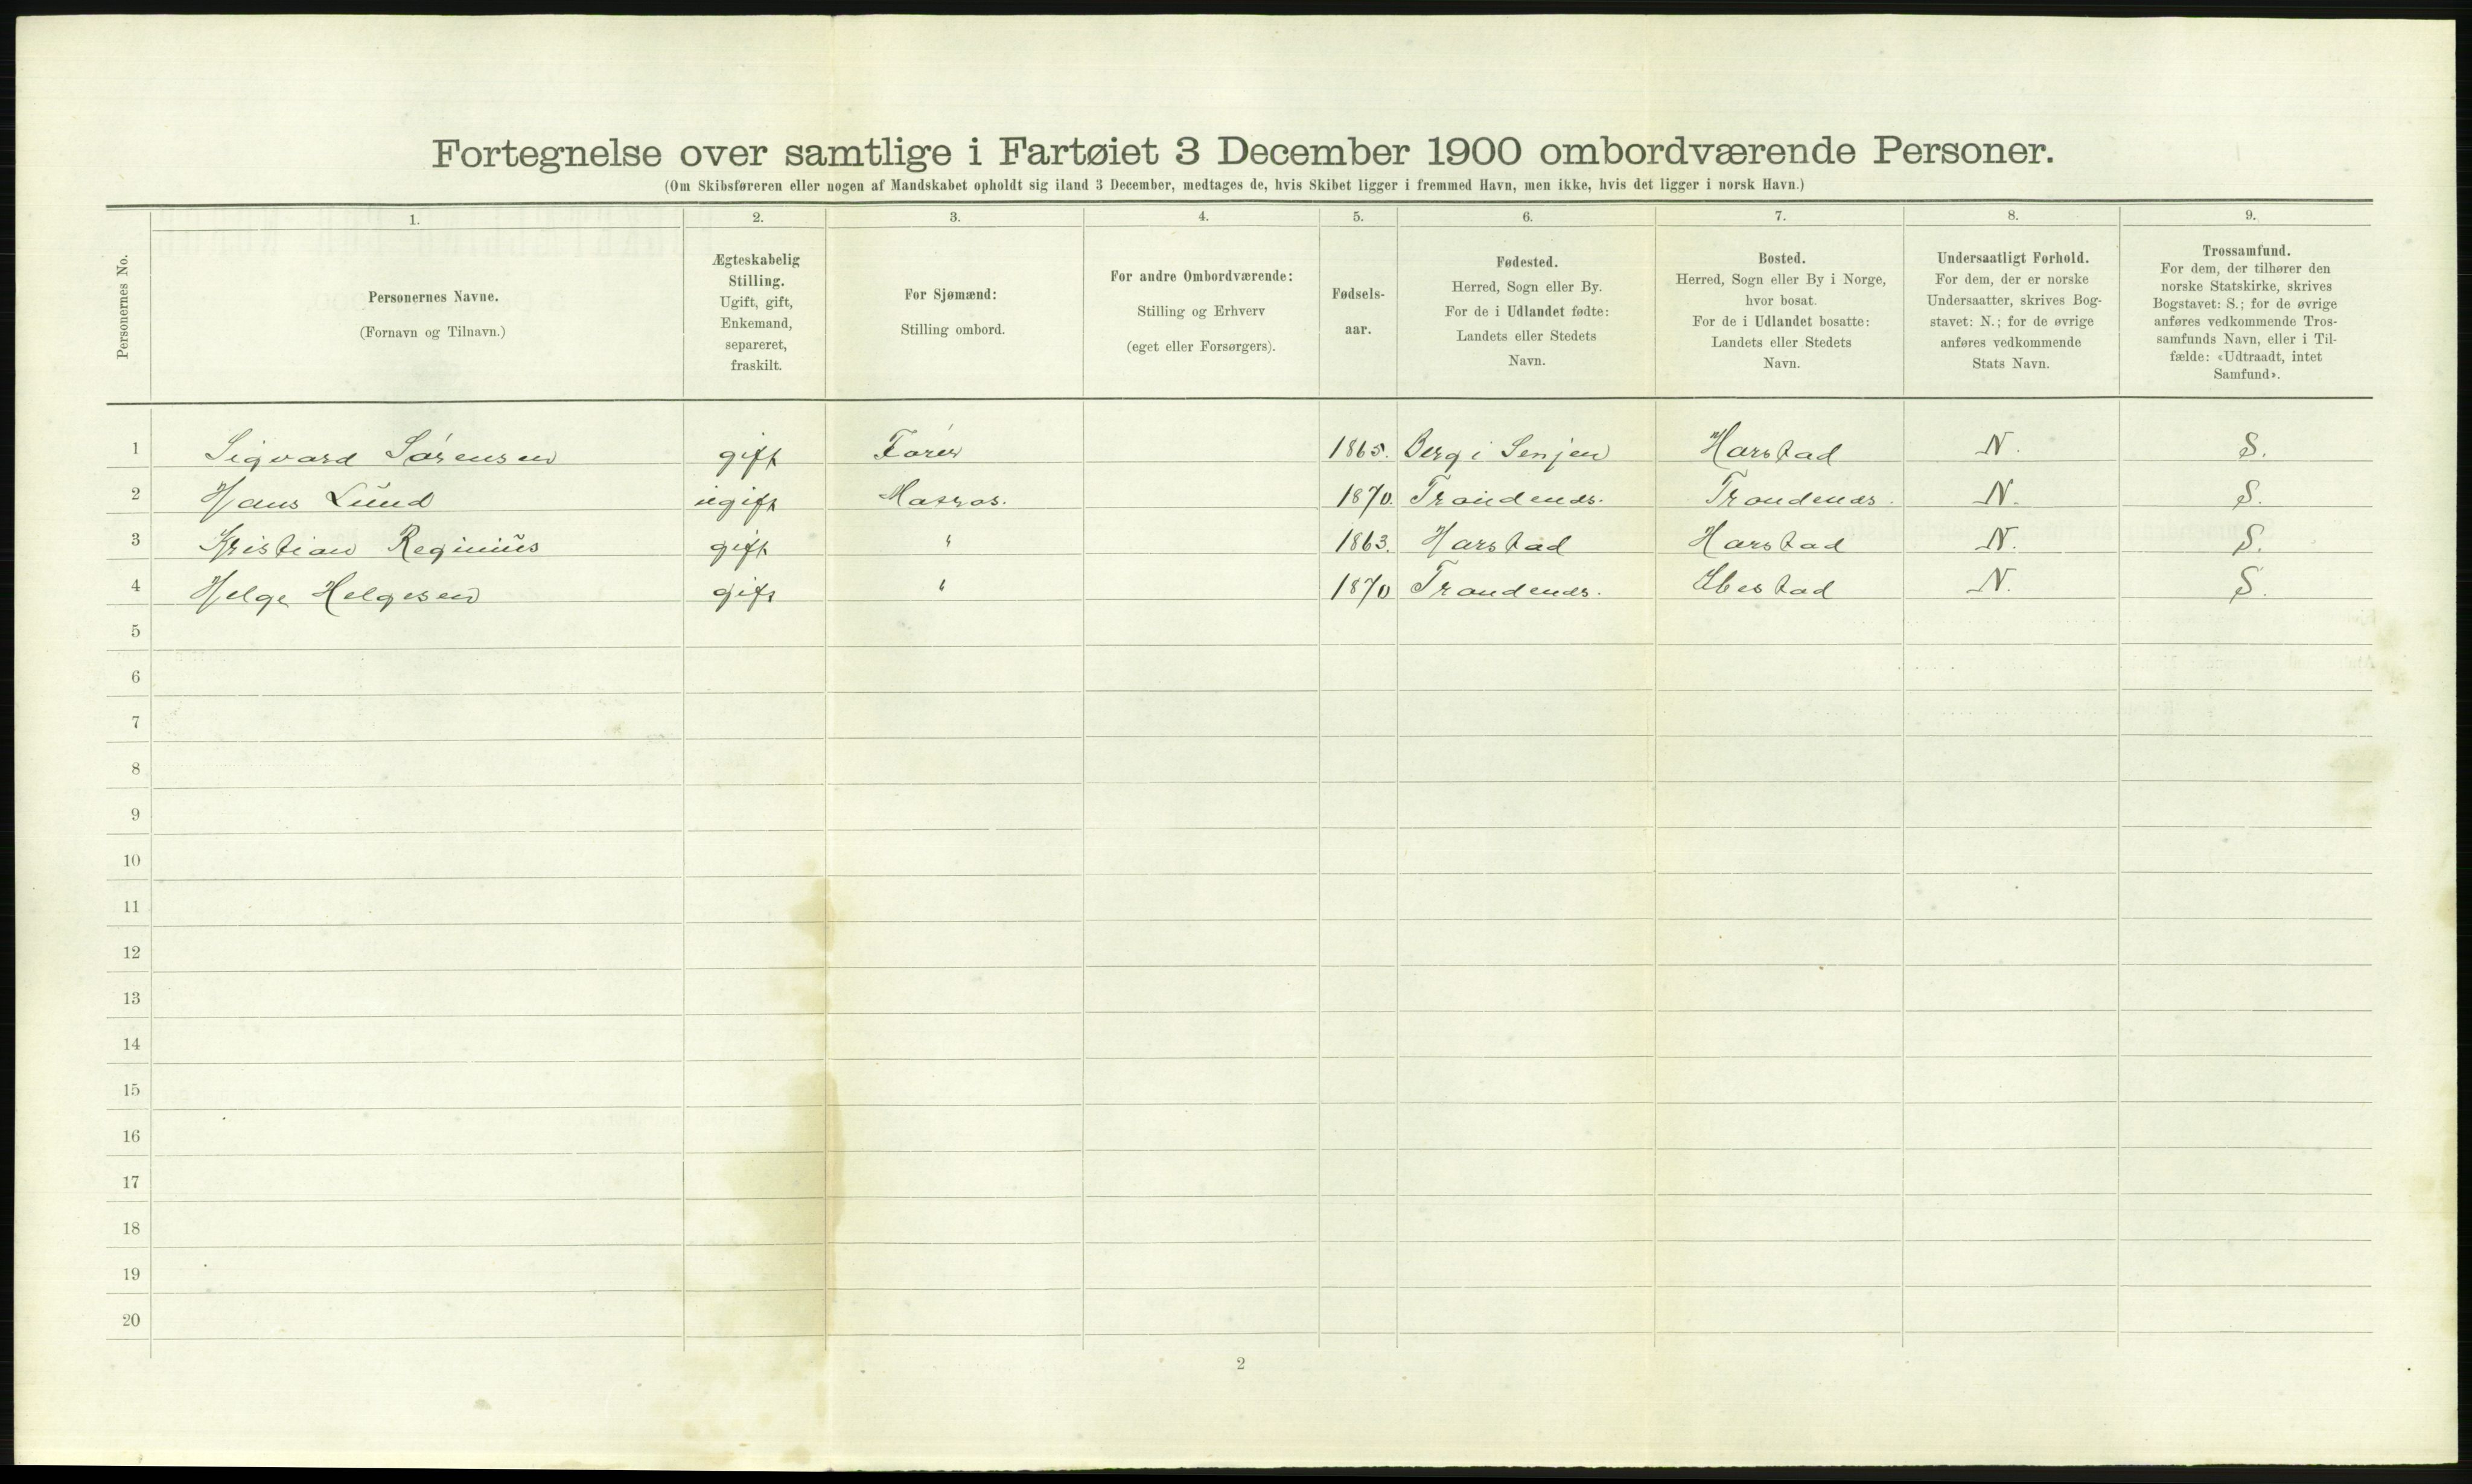 Fortegnelse over samtlige i Fartøiet 3 December 1900 ombordværende Personer.
(Om Skibsføreren eller nogen af Mandskabet opholdt sig iland 3 December, medtages de, hvis Skibet ligger i fremmed Havn, men ikke, hvis det ligger i norsk Havn.)
Personernes No.
1. 2. 3. 4. 5. 6. 7. 8. 9.
Personernes Navne.
(Fornavn og Tilnavn.)
Ægteskabelig
Stilling.
Ugift, gift,
Enkemand,
separeret,
fraskilt.
For Sjømænd:
Stilling ombord.
For andre Ombordværende:
Stilling og Erhverv
(eget eller Forsørgers).
Fødsels-
aar.
Fødested.
Herred, Sogn eller By.
For de i Udlandet fødte:
Landets eller Stedets
Navn.
Bosted.
Herred, Sogn eller By i Norge,
hvor bosat.
For de i Udlandet bosatte:
Landets eller Stedets
Navn.
Undersaatligt Forhold.
For dem, der er norske
Undersaatter, skrives Bog-
stavet: N.; for de øvrige
anføres vedkommende
Stats Navn.
Trossamfund.
For dem, der tilhører den
norske Statskirke, skrives
Bogstavet: S.; for de øvrige
anføres vedkommende Tros-
samfunds Navn, eller i Til-
fælde: «Udtraadt, intet
Samfund».
1 Sigvard Sørensen gift Fører 1865. Berg i Senjen Harstad N. S.
2 Hans Lund ugift Matros. 1870. Trondenæs. Trondenæs. N. S.
3 Kristian Reginius gift " 1863. Harstad Harstad N. S.
4 Helge Helgesen gift " 1870 Trondenæs. Ibestad N. S.
5
6
7
8
9
10
11
12
13
14
15
16
17
18
19
20
2